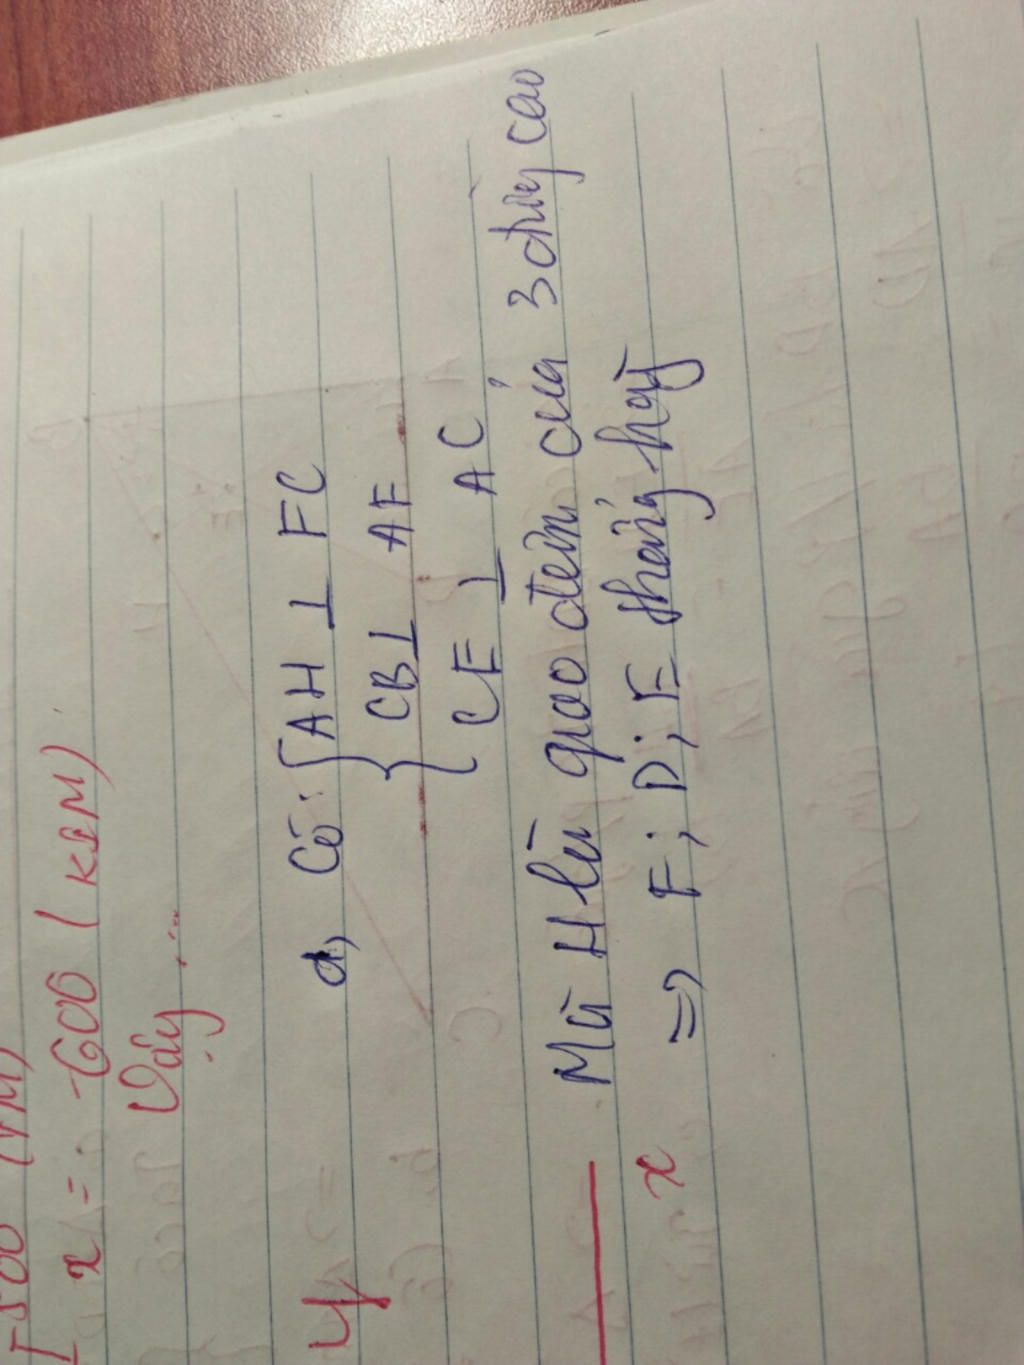 x = 600 (KTM)
Vây ...
4
a, Có: { AH ⊥ FC
CB ⊥ AF
CE ⊥ AC
Mà H là giao điểm của 3 đường cao
=> F; D; E thẳng hàng
x